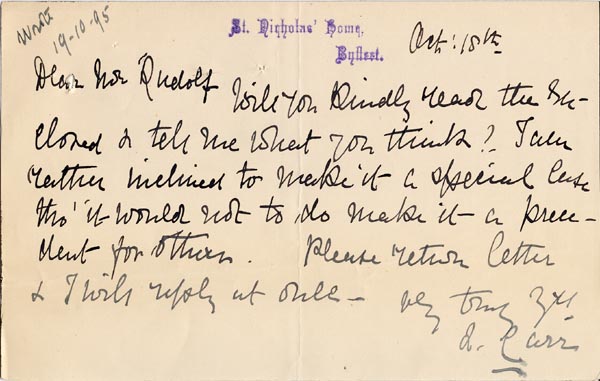 Wrote
19-10-95
St. Nicholas' Home,
Byfleet.
Oct: 18th
Dear Mr Rudolf
Will you kindly read the En-
closed & tell me what you think? I am
rather inclined to make it a special case
tho' it would not to do make it a prece-
dent for others. Please return letter
& I will reply at once –
Very truly yrs
L. Carr